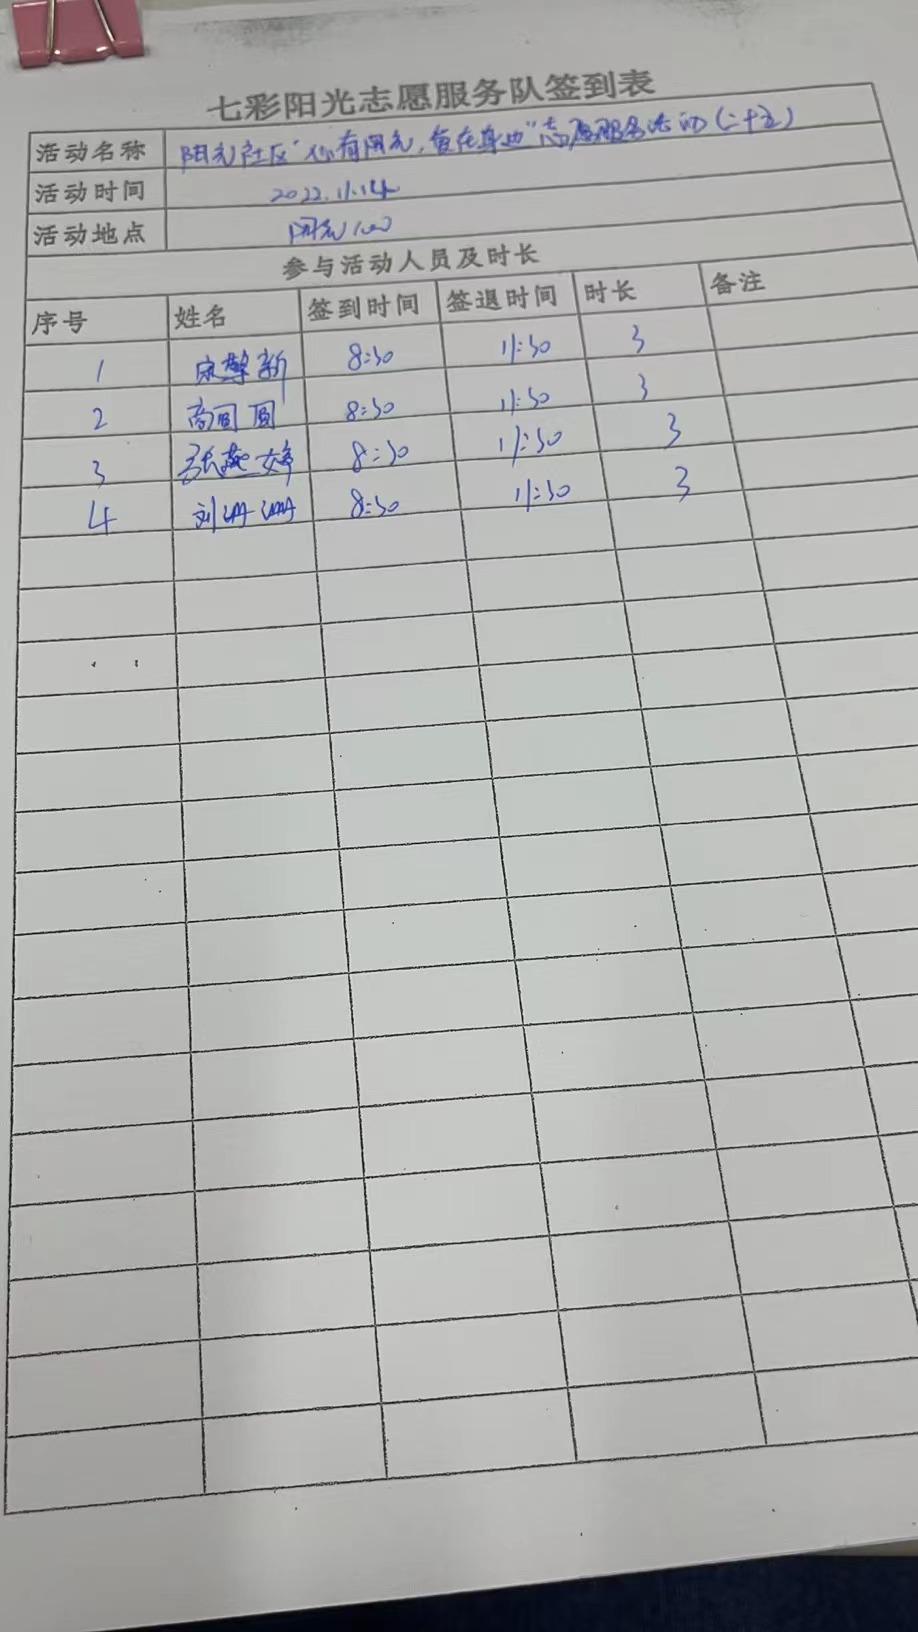 七彩阳光志愿服务队签到表
活动名称 阳光社区"你有阳光,爱在身边"志愿服务活动(二十五)
活动时间 2022.11.14
活动地点 阳光100
参与活动人员及时长
序号 姓名 签到时间 签退时间 时长 备注
1 新 8:30 11:30 3
2 高圆圆 8:30 11:30 3
3 张燕婷 8:30 11:30 3
4 刘姗姗 8:30 11:30 3